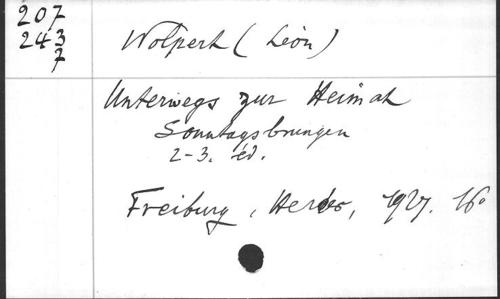 207
243
7
Wolpert (Léon)
Unterwegs zur Heimat
Sonntags
2-3. éd.
Freiburg, Herder, 1927. 16°